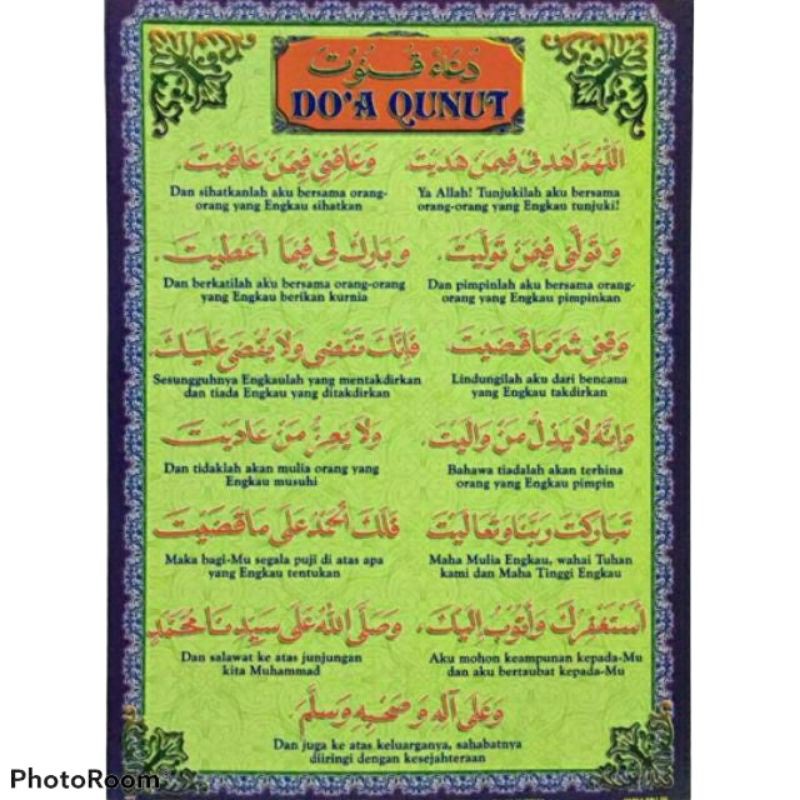 دعاء قنوت
DO'A QUNUT
اللهم اهدني فيمن هديت
Ya Allah! Tunjukilah aku bersama
orang-orang yang Engkau tunjuki!
وعافني فيمن عافيت
Dan sihatkanlah aku bersama orang-
orang yang Engkau sihatkan
وتولني فيمن توليت
Dan pimpinlah aku bersama orang-
orang yang Engkau pimpinkan
وبارك لي فيما أعطيت
Dan berkatilah aku bersama orang-orang
yang Engkau berikan kurnia
وقني شر ما قضيت
Lindungilah aku dari bencana
yang Engkau takdirkan
فإنك تقضي ولا يقضى عليك
Sesungguhnya Engkaulah yang mentakdirkan
dan tiada Engkau yang ditakdirkan
وإنه لا يذل من واليت
Bahawa tiadalah akan terhina
orang yang Engkau pimpin
ولا يعز من عاديت
Dan tidaklah akan mulia orang yang
Engkau musuhi
تباركت ربنا وتعاليت
Maha Mulia Engkau, wahai Tuhan
kami dan Maha Tinggi Engkau
فلك الحمد على ما قضيت
Maka bagi-Mu segala puji di atas apa
yang Engkau tentukan
أستغفرك وأتوب إليك
Aku mohon keampunan kepada-Mu
dan aku bertaubat kepada-Mu
وصلى الله على سيدنا محمد
Dan salawat ke atas junjungan
kita Muhammad
وعلى آله وصحبه وسلم
Dan juga ke atas keluarganya, sahabatnya
diiringi dengan kesejahteraan
PhotoRoom